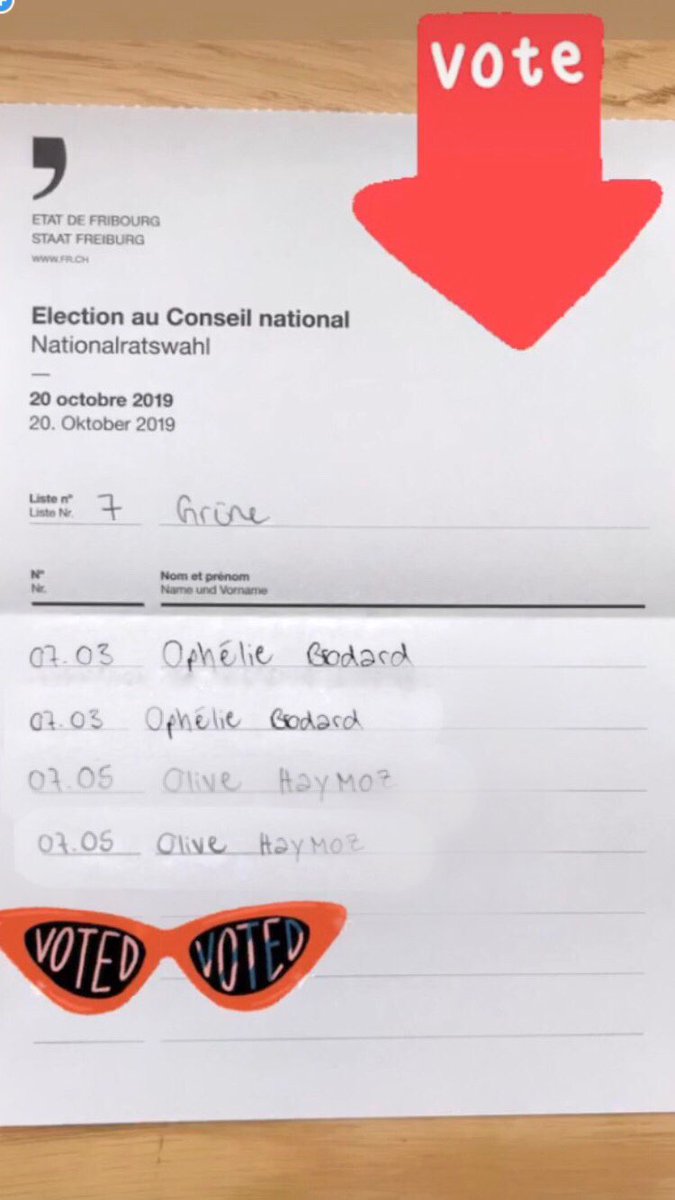 vote
ETAT DE FRIBOURG
STAAT FREIBURG
WWW.FR.CH
Election au Conseil national
Nationalratswahl
20 octobre 2019
20. Oktober 2019
Liste n° 7 Grüne
Liste Nr.
N° Nom et prénom
Nr. Name und Vorname
07.03 Ophélie Bodard
07.03 Ophélie Bodard
07.05 Olive HayMoz
07.05 Olive HayMoz
VOTED VOTED